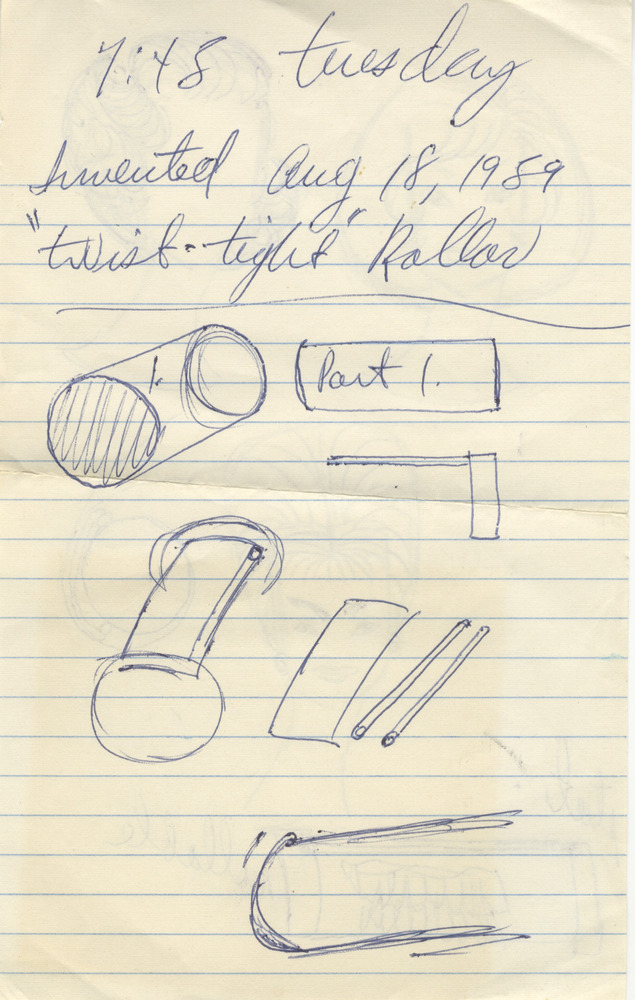 7:48 tuesday
Invented Aug 18, 1959
"twist-tight" Roller
1.
Part 1.